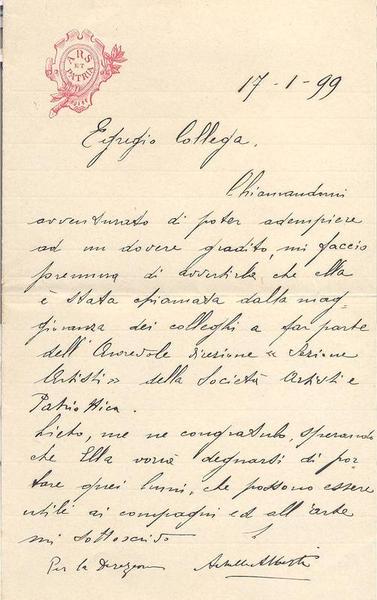 ARS
ET
PATRIA
17-1-99
Egregio Collega.
Chiamandomi
avventurato di poter adempiere
ad un dovere gradito, mi faccio
premura di avvertirla che ella
è stata chiamata dalla mag-
gioranza dei colleghi a far parte
dell'Onorevole direzione « Sezione
Artisti » della Società Artisti e
Patriottica.
Lieto, me ne congratulo, sperando
che Ella vorrà degnarsi di por
tare quei lumi, che possono essere
utili ai compagni ed all'arte
mi sottoscrivo
Per la Direzione Achille Alberti